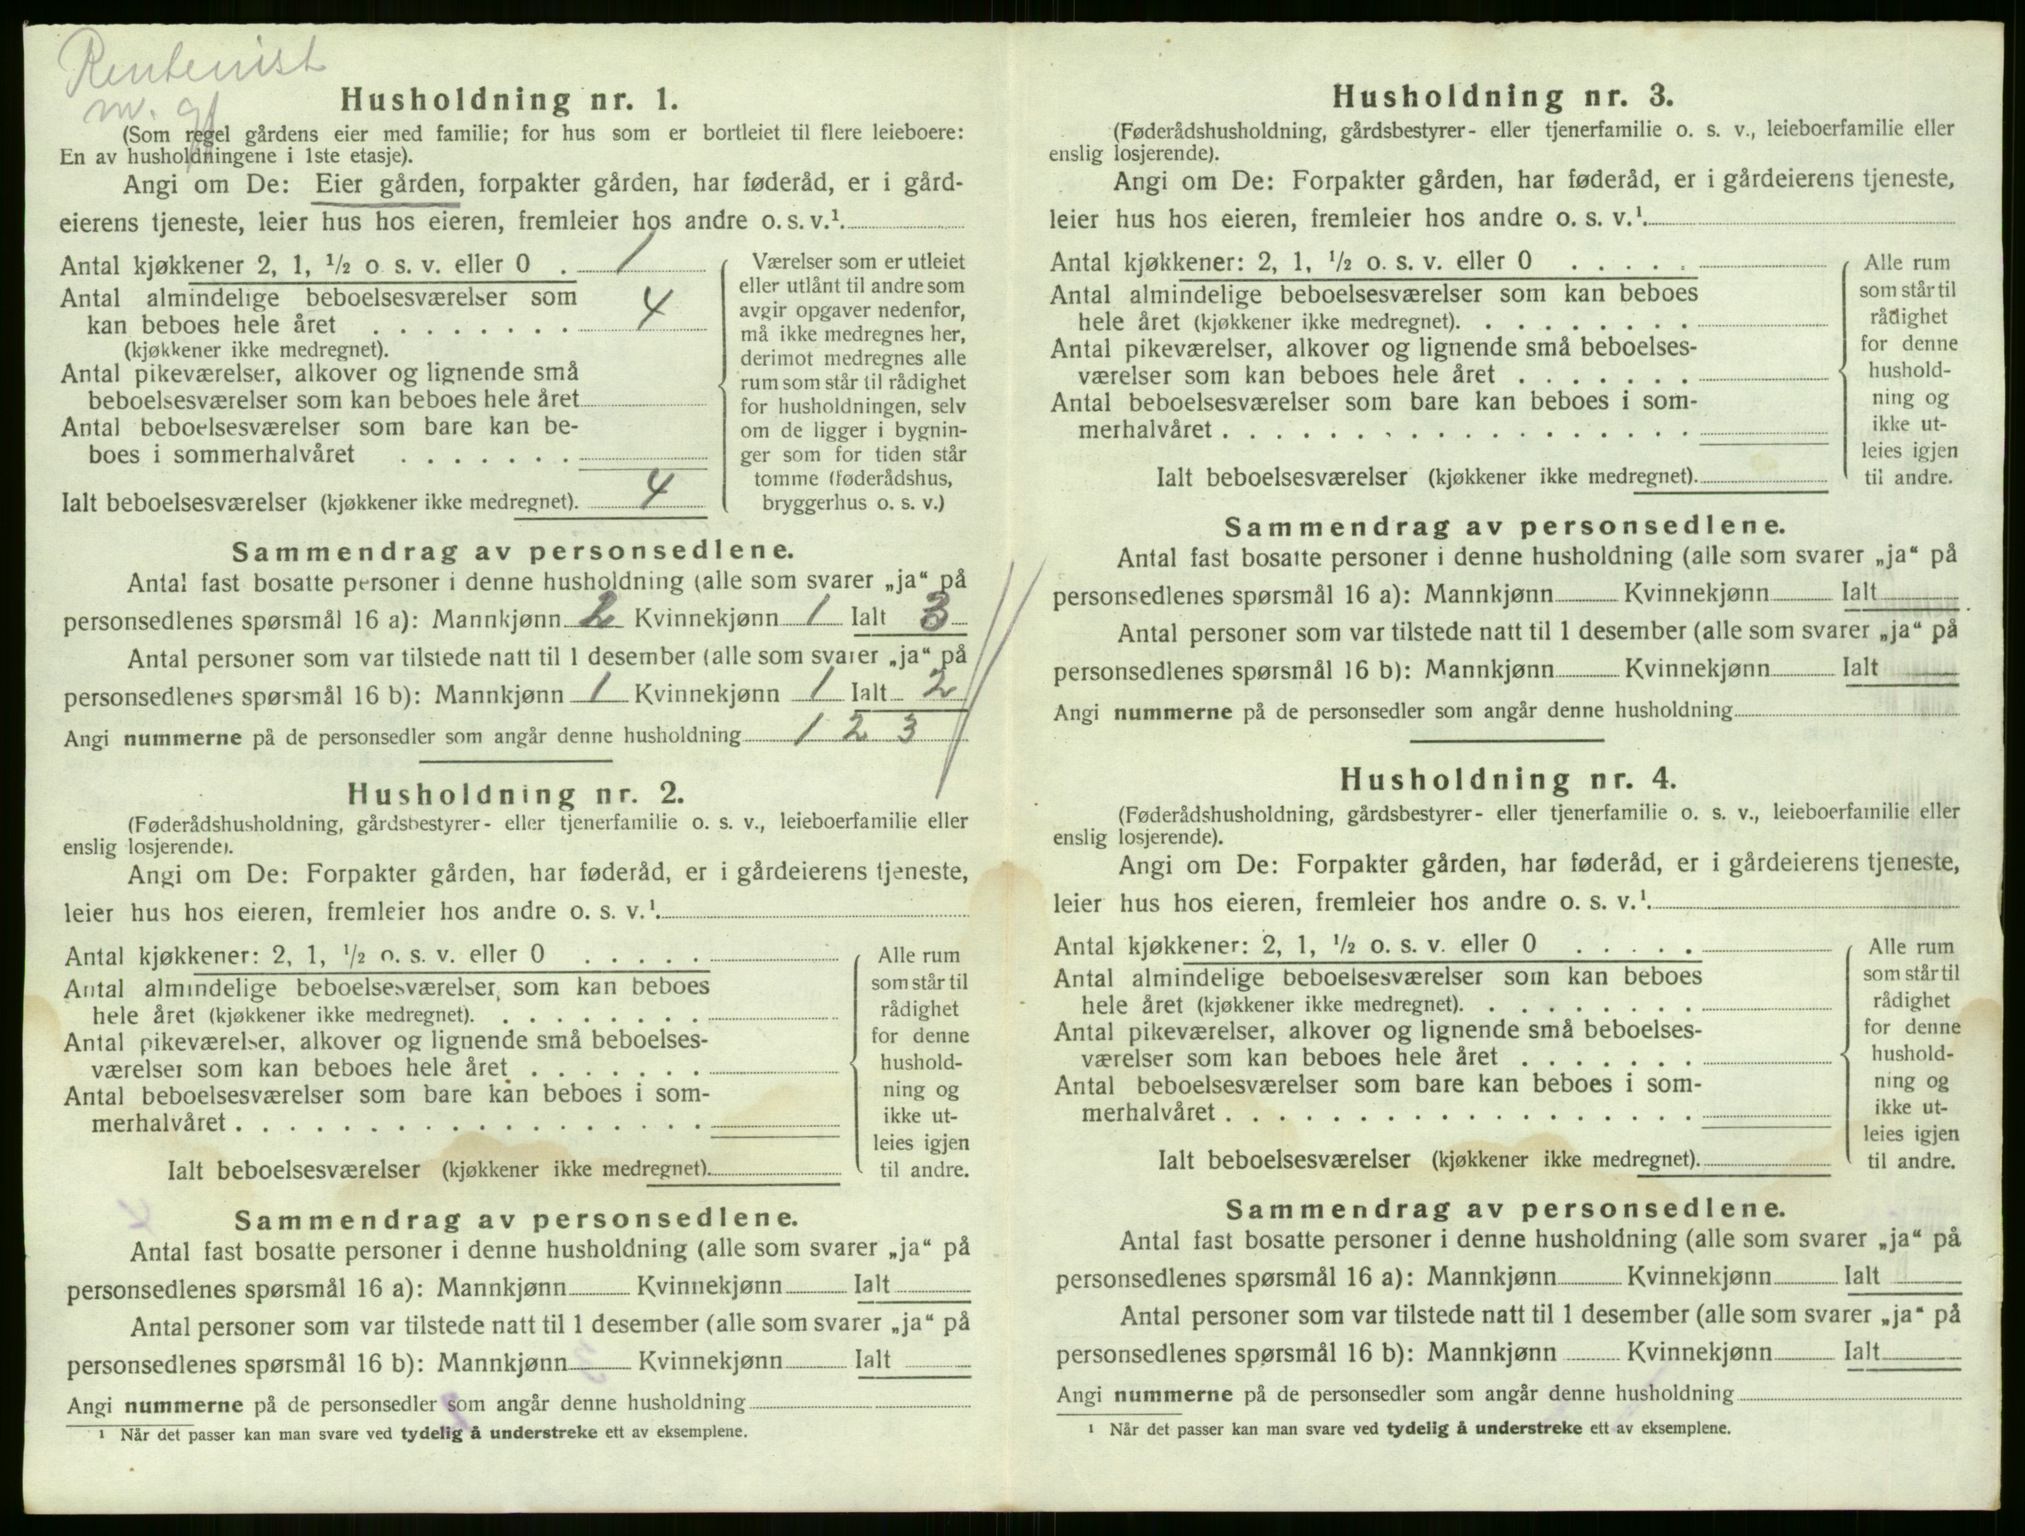 Rentenist
m. gf
Husholdning nr. 1.
(Som regel gårdens eier med familie; for hus som er bortleiet til flere leieboere:
En av husholdningene i 1ste etasje).
Angi om De: Eier gården, forpakter gården, har føderåd, er i gård-
eierens tjeneste, leier hus hos eieren, fremleier hos andre o. s. v.¹.
Antal kjøkkener 2, 1, ½ o s. v. eller 0 . 1
Antal almindelige beboelsesværelser som
kan beboes hele året . . . . . . . . 4
(kjøkkener ikke medregnet).
Antal pikeværelser, alkover og lignende små
beboelsesværelser som kan beboes hele året
Antal beboelsesværelser som bare kan be-
boes i sommerhalvåret . . . . . . .
Ialt beboelsesværelser (kjøkkener ikke medregnet). 4
Værelser som er utleiet
eller utlånt til andre som
avgir opgaver nedenfor,
må ikke medregnes her,
derimot medregnes alle
rum som står til rådighet
for husholdningen, selv
om de ligger i bygnin-
ger som for tiden står
tomme (føderådshus,
bryggerhus o. s. v.)
Sammendrag av personsedlene.
Antal fast bosatte personer i denne husholdning (alle som svarer „ja“ på
personsedlenes spørsmål 16 a): Mannkjønn 2 Kvinnekjønn 1 Ialt 3
Antal personer som var tilstede natt til 1 desember (alle som svarer „ja“ på
personsedlenes spørsmål 16 b): Mannkjønn 1 Kvinnekjønn 1 Ialt 2
Angi nummerne på de personsedler som angår denne husholdning 1 2 3
Husholdning nr. 2.
(Føderådshusholdning, gårdsbestyrer- eller tjenerfamilie o. s. v., leieboerfamilie eller
enslig losjerende).
Angi om De: Forpakter gården, har føderåd, er i gårdeierens tjeneste,
leier hus hos eieren, fremleier hos andre o. s. v.¹.
Antal kjøkkener: 2, 1, ½ o. s. v. eller 0 . . . . .
Antal almindelige beboelsesværelser som kan beboes
hele året (kjøkkener ikke medregnet). . . . . . . . .
Antal pikeværelser, alkover og lignende små beboelses-
værelser som kan beboes hele året . . . . . . .
Antal beboelsesværelser som bare kan beboes i som-
merhalvåret . . . . . . . . . . . . . . . . . .
Ialt beboelsesværelser (kjøkkener ikke medregnet).
Alle rum
som står til
rådighet
for denne
hushold-
ning og
ikke ut-
leies igjen
til andre.
Sammendrag av personsedlene.
Antal fast bosatte personer i denne husholdning (alle som svarer „ja“ på
personsedlenes spørsmål 16 a): Mannkjønn Kvinnekjønn Ialt
Antal personer som var tilstede natt til 1 desember (alle som svarer „ja“ på
personsedlenes spørsmål 16 b): Mannkjønn Kvinnekjønn Ialt
Angi nummerne på de personsedler som angår denne husholdning
¹ Når det passer kan man svare ved tydelig å understreke ett av eksemplene.
Husholdning nr. 3.
(Føderådshusholdning, gårdsbestyrer- eller tjenerfamilie o. s. v., leieboerfamilie eller
enslig losjerende).
Angi om De: Forpakter gården, har føderåd, er i gårdeierens tjeneste,
leier hus hos eieren, fremleier hos andre o. s. v.¹.
Antal kjøkkener: 2, 1, ½ o. s. v. eller 0 . . . . .
Antal almindelige beboelsesværelser som kan beboes
hele året (kjøkkener ikke medregnet). . . . . . . . .
Antal pikeværelser, alkover og lignende små beboelses-
værelser som kan beboes hele året . . . . . . .
Antal beboelsesværelser som bare kan beboes i som-
merhalvåret . . . . . . . . . . . . . . . . . .
Ialt beboelsesværelser (kjøkkener ikke medregnet).
Alle rum
som står til
rådighet
for denne
hushold-
ning og
ikke ut-
leies igjen
til andre.
Sammendrag av personsedlene.
Antal fast bosatte personer i denne husholdning (alle som svarer „ja“ på
personsedlenes spørsmål 16 a): Mannkjønn Kvinnekjønn Ialt
Antal personer som var tilstede natt til 1 desember (alle som svarer „ja“ på
personsedlenes spørsmål 16 b): Mannkjønn Kvinnekjønn Ialt
Angi nummerne på de personsedler som angår denne husholdning
Husholdning nr. 4.
(Føderådshusholdning, gårdsbestyrer- eller tjenerfamilie o. s. v., leieboerfamilie eller
enslig losjerende).
Angi om De: Forpakter gården, har føderåd, er i gårdeierens tjeneste,
leier hus hos eieren, fremleier hos andre o. s. v.¹.
Antal kjøkkener: 2, 1, ½ o. s. v. eller 0 . . . . .
Antal almindelige beboelsesværelser som kan beboes
hele året (kjøkkener ikke medregnet). . . . . . . . .
Antal pikeværelser, alkover og lignende små beboelses-
værelser som kan beboes hele året . . . . . . .
Antal beboelsesværelser som bare kan beboes i som-
merhalvåret . . . . . . . . . . . . . . . . . .
Ialt beboelsesværelser (kjøkkener ikke medregnet).
Alle rum
som står til
rådighet
for denne
hushold-
ning og
ikke ut-
leies igjen
til andre.
Sammendrag av personsedlene.
Antal fast bosatte personer i denne husholdning (alle som svarer „ja“ på
personsedlenes spørsmål 16 a): Mannkjønn Kvinnekjønn Ialt
Antal personer som var tilstede natt til 1 desember (alle som svarer „ja“ på
personsedlenes spørsmål 16 b): Mannkjønn Kvinnekjønn Ialt
Angi nummerne på de personsedler som angår denne husholdning
¹ Når det passer kan man svare ved tydelig å understreke ett av eksemplene.